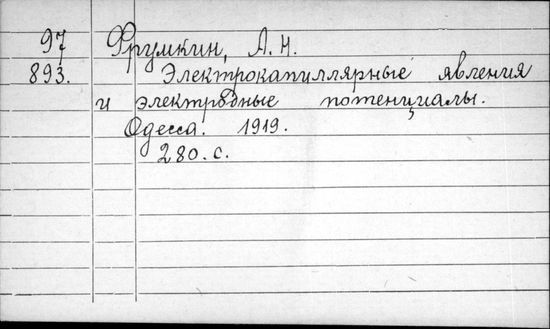 97 Фрумкин, А. Н.
893. Электрокапиллярные явления
и электродные потенциалы.
Одесса. 1919.
280. с.